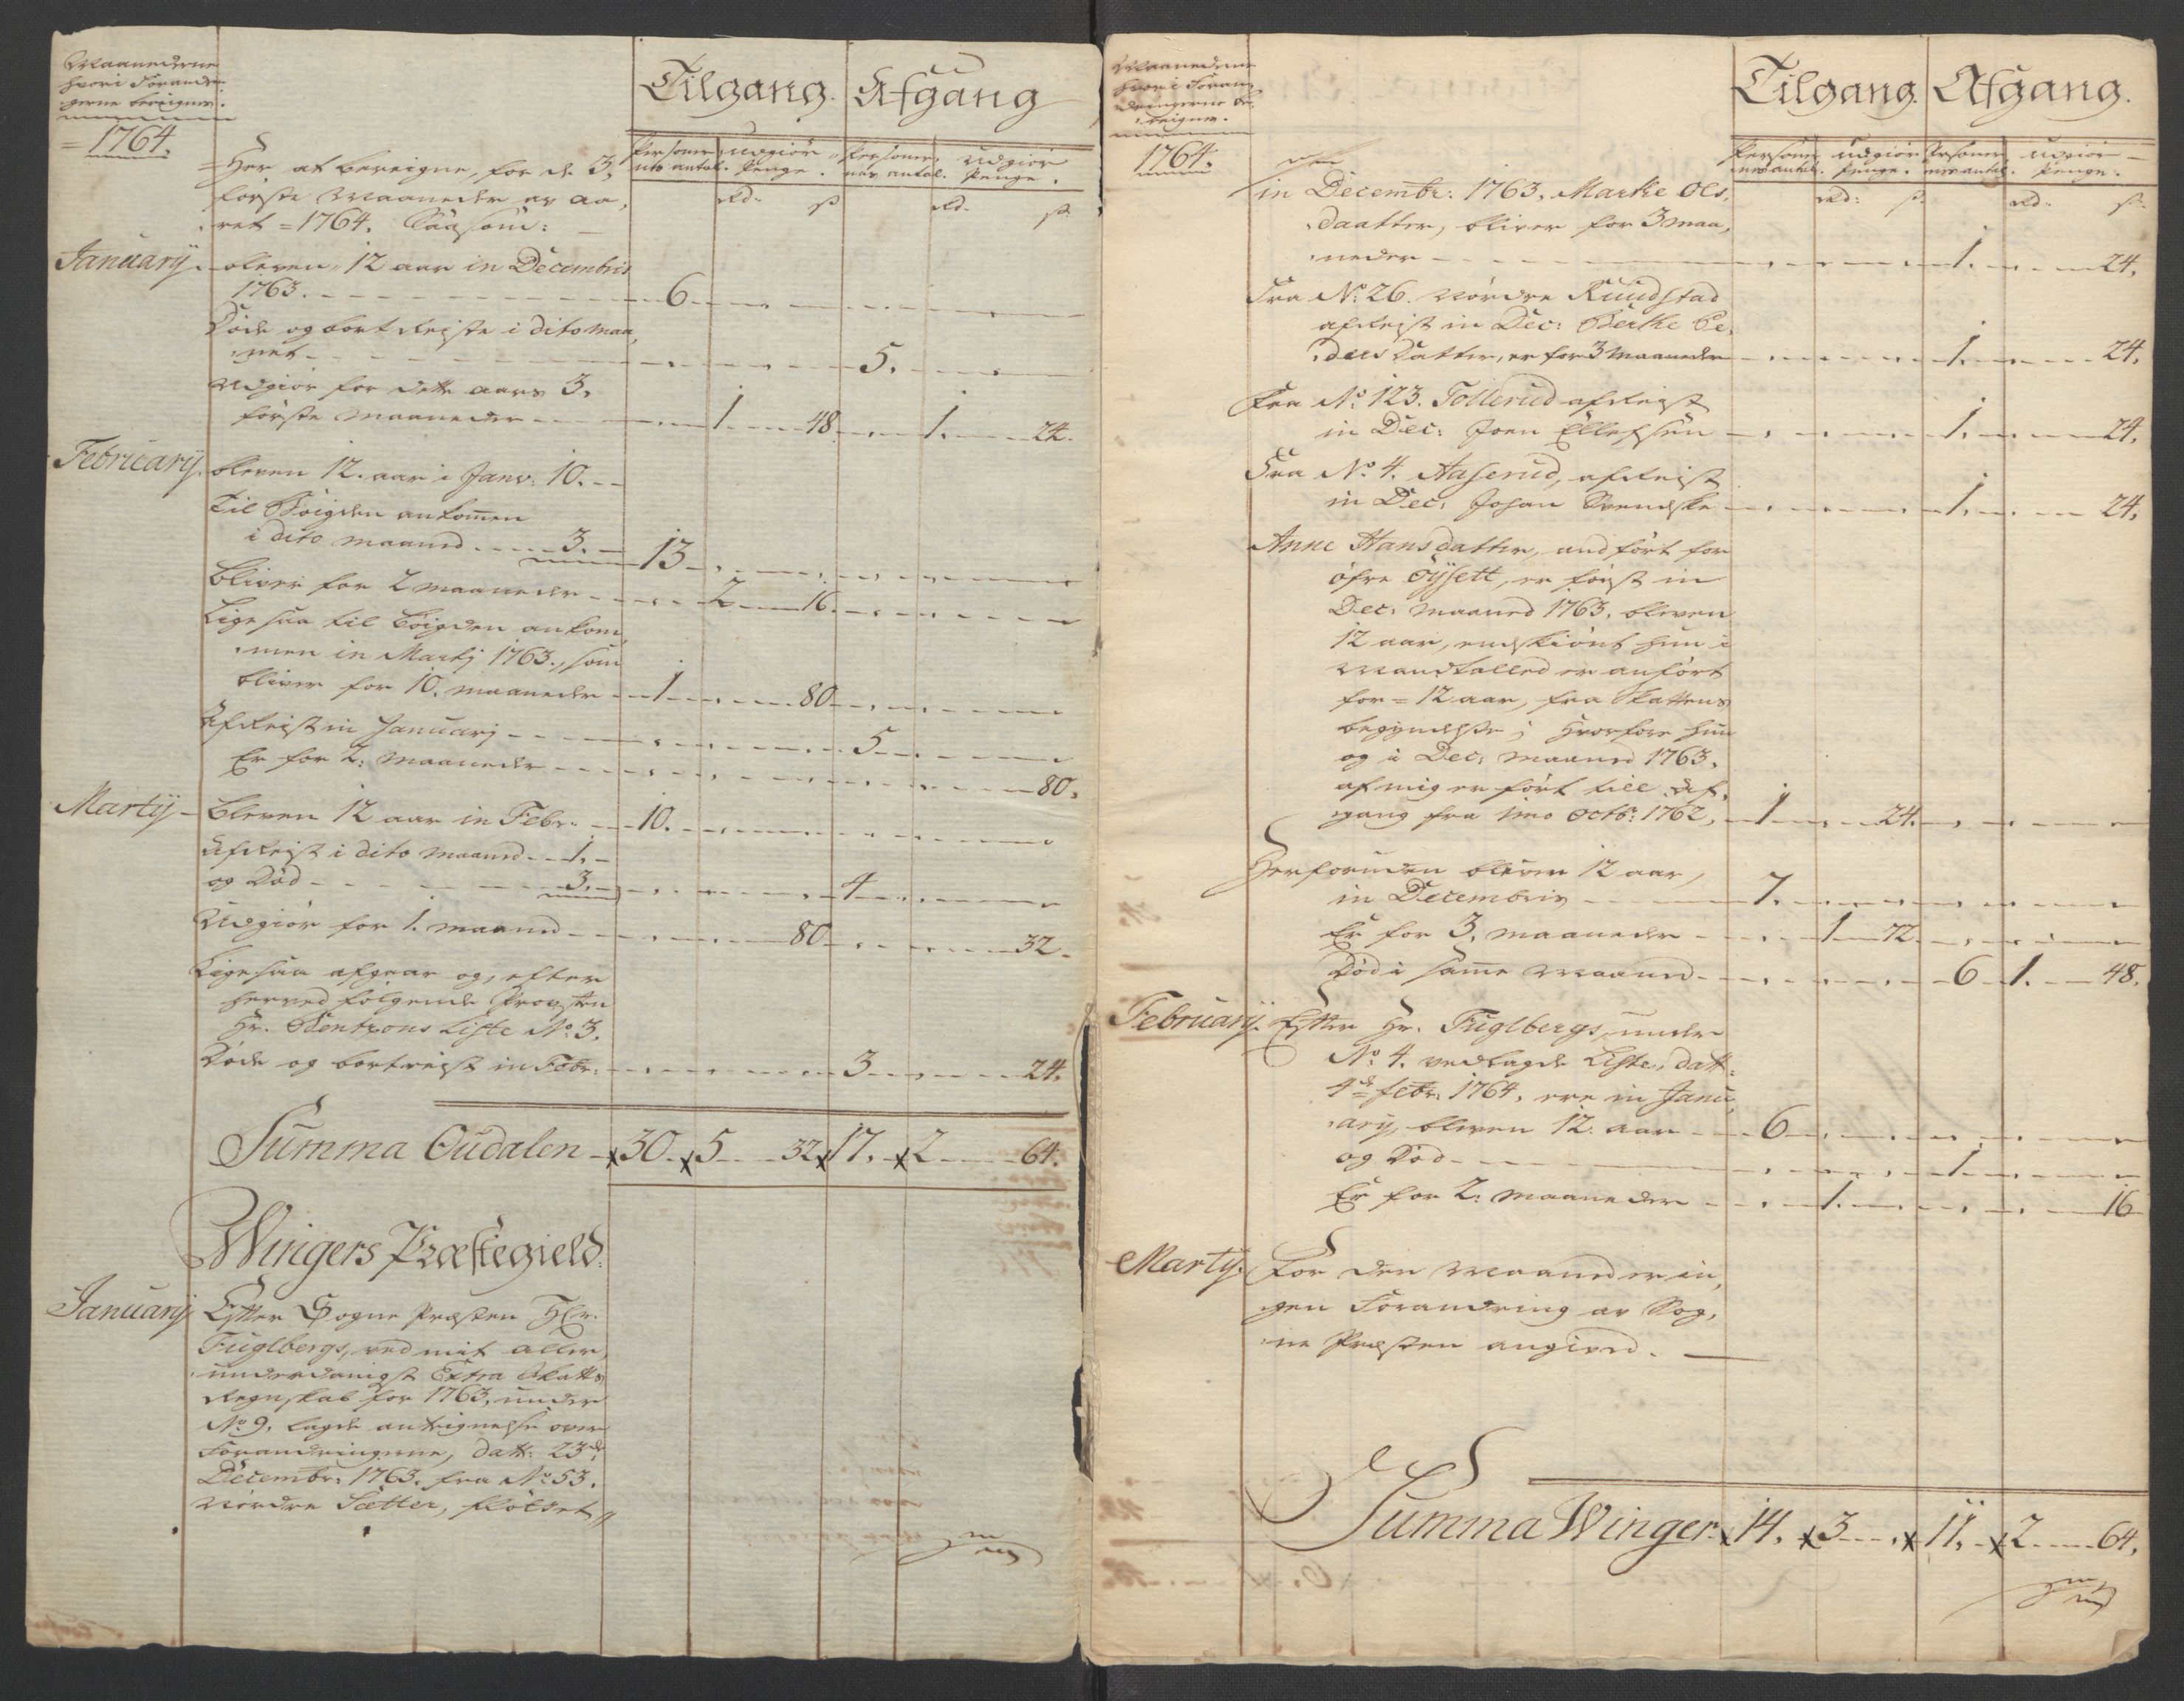 Maanederne
hvori Forandrin
gerne bereignes.
1764.
Tilgang. Afgang
Personer
nes antal. Udgiør
Penge. Personer,
nes antal. Udgiør
Penge.
rd. ß rd. ß
Her at bereigne, for de 3,
første Maaneder av Aa,
ret 1764. Saasom:
January. bleven 12 aar in Decembris
1763. 6
Døde og bortreiste i dito Maa,
net 5.
Udgiør for dette aars 3.
første Maaneder 1. 48. 1. 24.
February. bleven 12. aar i Janv: 10.
Til Bøigden ankomen
i dito maaned 3. 13
Bliver for 2 maaneder 2 16.
Ligesaa til Bøigden ankom,
men in Martij 1763., som
bliver for 10. maaneder 1 80
Afreist in Januarij 5
Er for 2. Maaneder 80.
Martij Bleven 12 aar in Febr. 10.
Afreist i dito maaned 1.
og Død 3. 4
Udgiør for 1. maaned 80 32.
Ligesaa afgaar og, efter
herved følgende Provsten
Hr. Bentzons Liste No. 3.
Døde og bortreist in Febr. 3 24.
Summa Oudalen 30. 5 32 17. 2 64.
Wingers Præstegield.
January Efter Sogne Præsten Hr.
Fuglbergs, ved mit aller,
underdanigst Extra Skatts
Regnskab for 1763, under
No 9. lagde antegnelse over
Forandringerne, datt: 23de
Decembr: 1763. fra No 53.
Nordre Sætter, Flÿttet
Maanederne
hvori Foran,
dringerne be,
reignes.
1764.
Tilgang. Afgang.
Personer
nes antal. Udgiør
Penge. Personer
nes antal. Udgiør
Penge.
rd: ß. rd. ß.
in Decembr: 1763. Marthe Ols,
daatter, bliver for 3 maa,
neder 1. 24.
Fra No. 26. Nordre Ruudstad
afreist in Dec: Berthe Pe,
ders Datter, er for 3 maaneder 1. 24.
Fra No. 123. Tollerud afreist
in Dec: Joen Ellefsen 1. 24.
Fra No. 4. Aaserud, afreist
in Dec. Johan Svendske 1. 24.
Anne Hansdatter, andført for
øfre Øÿsett, er først in
Dec: maaned 1763. bleven
12 aar, endskiønt hun i
Mandtalled er anført
for 12 aar, fra Skattens
begyndelse; hvorfore hun
og i Dec: maaned 1763.
af mig er ført till Af,
gang fra 1mo Octb: 1762. 1 24.
Herforuden bleven 12 aar,
in Decembris 7.
Er for 3. maaneder 1 72
Død i samme Maaned 6 1. 48.
February. Efter Hr. Fuglbergs, under
No. 4. vedlagde Liste, datt:
4de febr: 1764. ere in Janu,
ary, bleven 12. aar 6
og Død 1.
Er for 2: maaneder 1. 16
Marty. For den Maaned er in,
gen Forandring av Sog,
ne Præsten angived.
Summa Winger. 14. 3 11. 2 64.